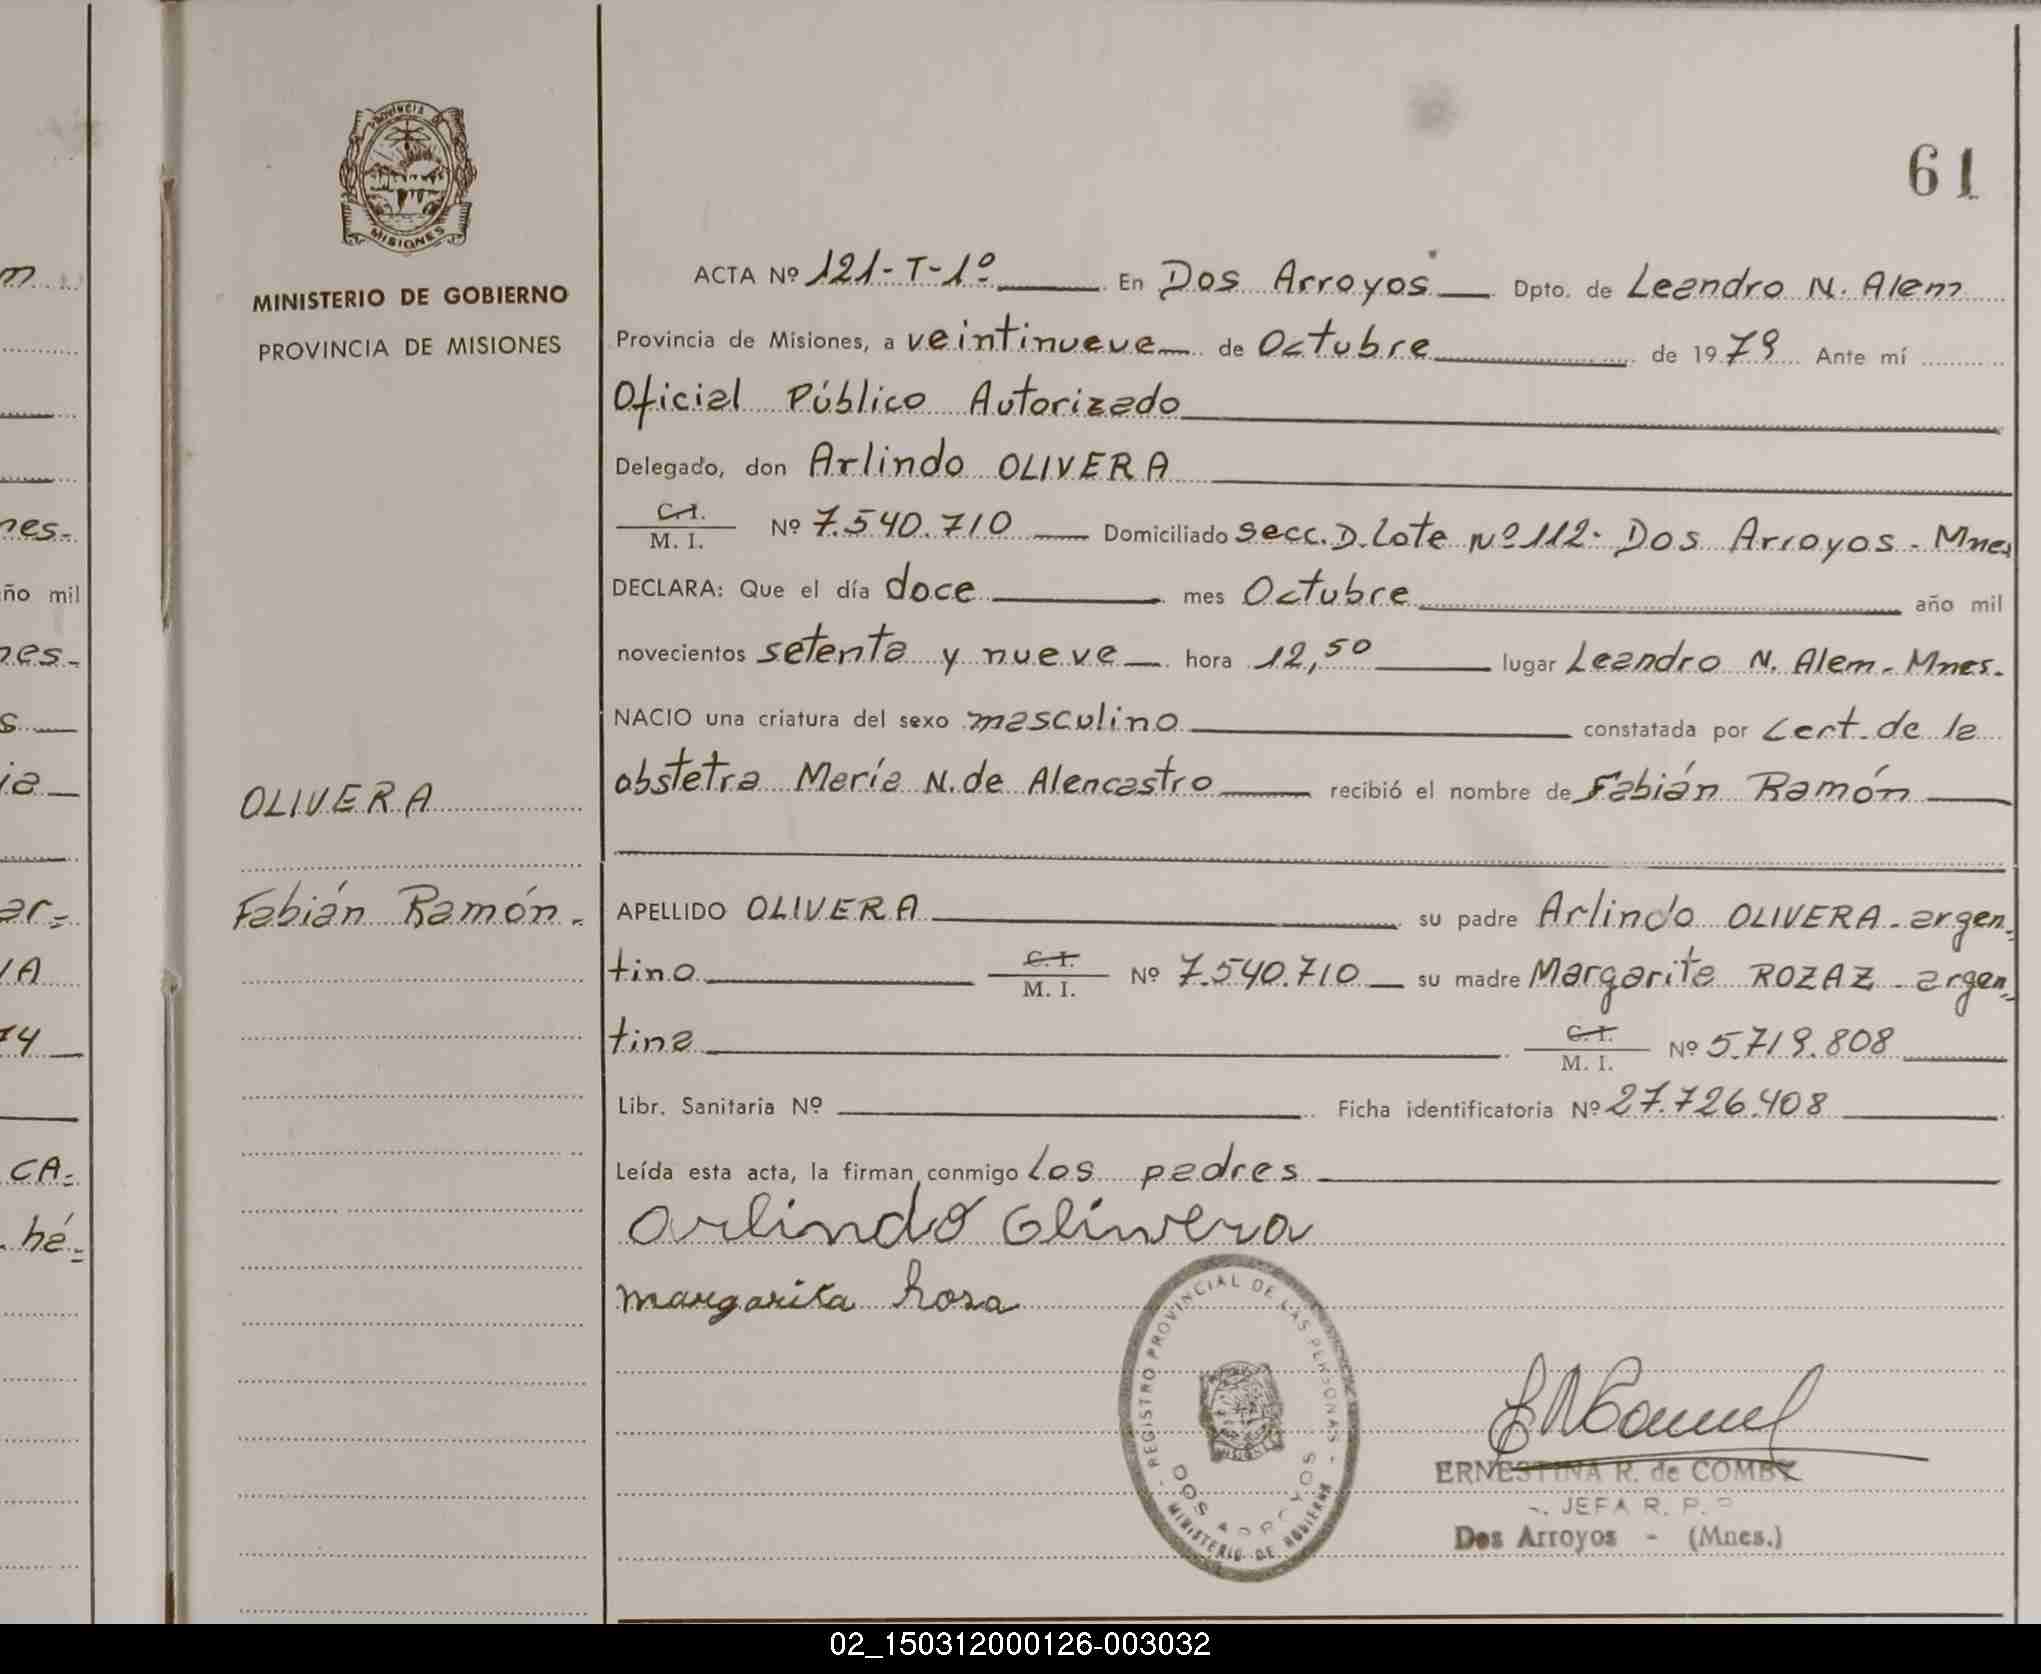 PROVINCIA DE
MISIONES
MINISTERIO DE GOBIERNO
PROVINCIA DE MISIONES
OLIVERA
Fabián Ramón.
61
ACTA Nº 121-T-1º En Dos Arroyos Dpto. de Leandro N. Alem
Provincia de Misiones, a veintinueve de Octubre de 1979 Ante mí
Oficial Público Autorizado
Delegado, don Arlindo OLIVERA
C.I.
M. I. Nº 7.540.710 Domiciliado secc. D. Lote Nº 112- Dos Arroyos - Mnes
DECLARA: Que el día doce mes Octubre año mil
novecientos setenta y nueve hora 12,50 lugar Leandro N. Alem - Mnes.
NACIO una criatura del sexo masculino constatada por Cert. de la
obstetra María N. de Alencastro recibió el nombre de Fabián Ramón
APELLIDO OLIVERA su padre Arlindo OLIVERA - argen-
tino C.I. M. I. Nº 7.540.710 su madre Margarita ROZAZ - argen-
tina C.I. M. I. Nº 5.719.808
Libr. Sanitaria Nº Ficha identificatoria Nº 27.726.408
Leída esta acta, la firman conmigo los padres
arlindo Olivera
margarita Rosa
REGISTRO PROVINCIAL DE LAS PERSONAS
DOS ARROYOS
MINISTERIO DE GOBIERNO
ERNESTINA R. de COMBY
JEFA R. P. P
Dos Arroyos - (Mnes.)
mes-
año mil
nes-
CA-
hé-
02_150312000126-003032